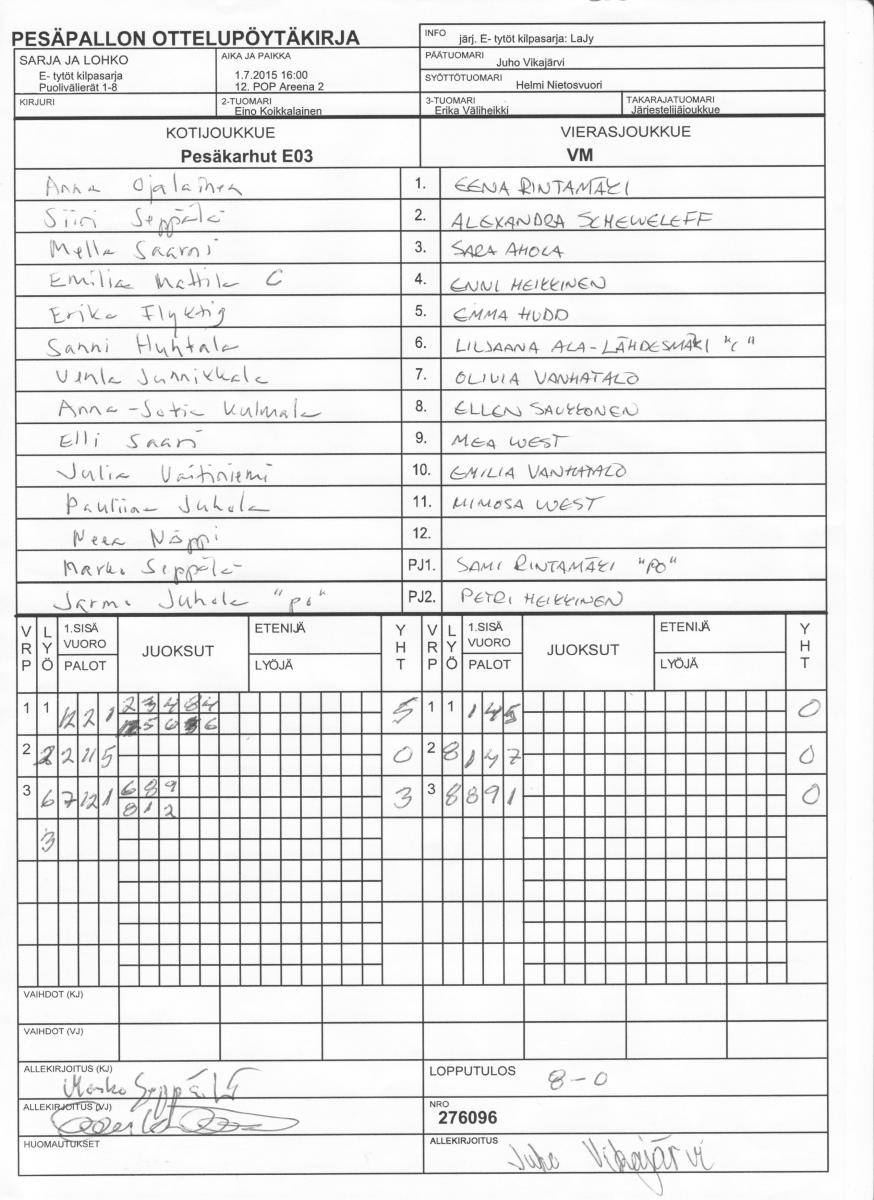 PESÄPALLON OTTELUPÖYTÄKIRJA
INFO järj. E- tytöt kilpasarja: LaJy
SARJA JA LOHKO
E- tytöt kilpasarja
Puolivälierät 1-8
AIKA JA PAIKKA
1.7.2015 16:00
12. POP Areena 2
PÄÄTUOMARI
Juho Vikajärvi
SYÖTTÖTUOMARI
Helmi Nietosvuori
KIRJURI
2-TUOMARI
Eino Koikkalainen
3-TUOMARI
Erika Väliheikki
TAKARAJATUOMARI
Järjestelijäjoukkue
KOTIJOUKKUE VIERASJOUKKUE
Pesäkarhut E03 VM
Anna Ojalainen 1. EENA RINTAMÄKI
Siiri Seppälä 2. ALEXANDRA SCHEWELEFF
Mella Saarni 3. SARA AHOLA
Emilia Mattila C 4. ENNI HEIKKINEN
Erika Flyktig 5. EMMA HUDD
Sanni Huhtala 6. LILJAANA ALA-LÄHDESMÄKI "C"
Venla Junnikkala 7. OLIVIA VANHATALO
Anna-Sofia Kulmala 8. ELLEN SAUKKONEN
Elli Saari 9. MEA WEST
Julia Vaitiniemi 10. EMILIA VANHATALO
Pauliina Juhola 11. MIMOSA WEST
Neea Näppi 12.
Marko Seppälä PJ1. SAMI RINTAMÄKI "PO"
Jarmo Juhola "po" PJ2. PETRI HEIKKINEN
VRP LYÖ 1.SISÄ VUORO PALOT JUOKSUT ETENIJÄ LYÖJÄ YHT VRP LYÖ 1.SISÄ VUORO PALOT JUOKSUT ETENIJÄ LYÖJÄ YHT
1 1 12 2 1 2 3 4 8 4 5 1 1 1 4 5 0
5 6 6
2 2 2 11 5 0 2 8 1 4 7 0
3 6 7 12 1 6 8 9 3 3 8 8 9 1 0
8 1 2
3
VAIHDOT (KJ)
VAIHDOT (VJ)
ALLEKIRJOITUS (KJ) Marko Seppälä
LOPPUTULOS 8-0
ALLEKIRJOITUS (VJ)
NRO
276096
HUOMAUTUKSET
ALLEKIRJOITUS Juho Vikajärvi